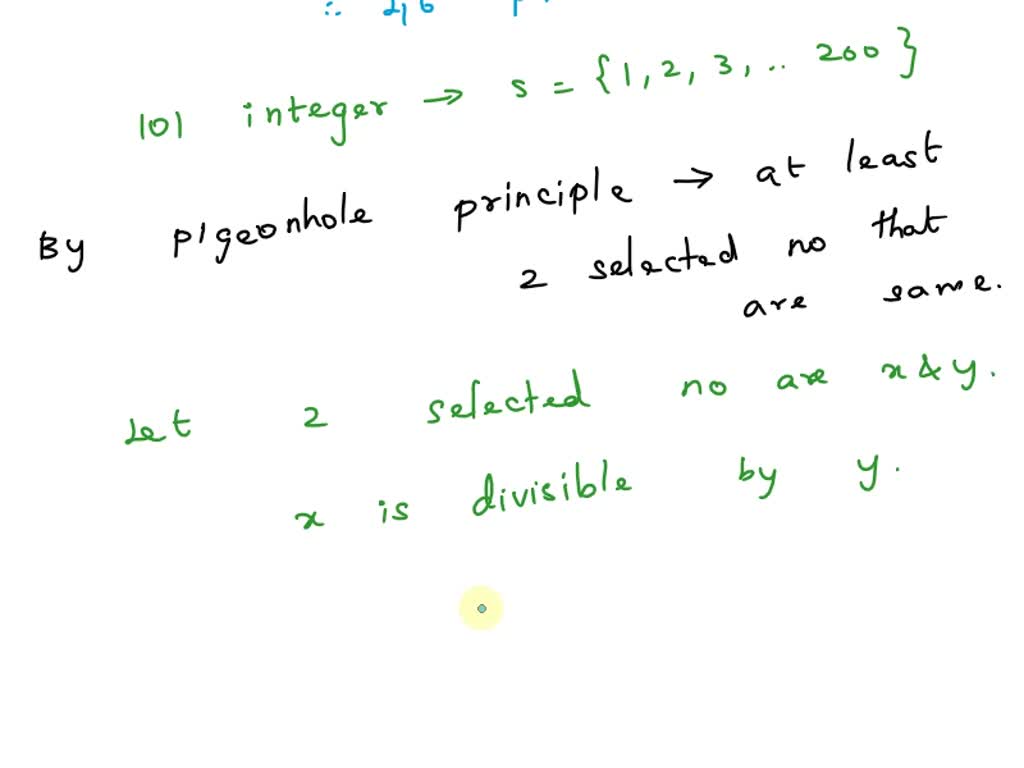 101 integer → s = {1, 2, 3, .. 200}
By pigeonhole principle → at least
2 selected no that
are same.
Let 2 selected no are x & y.
x is divisible by y.